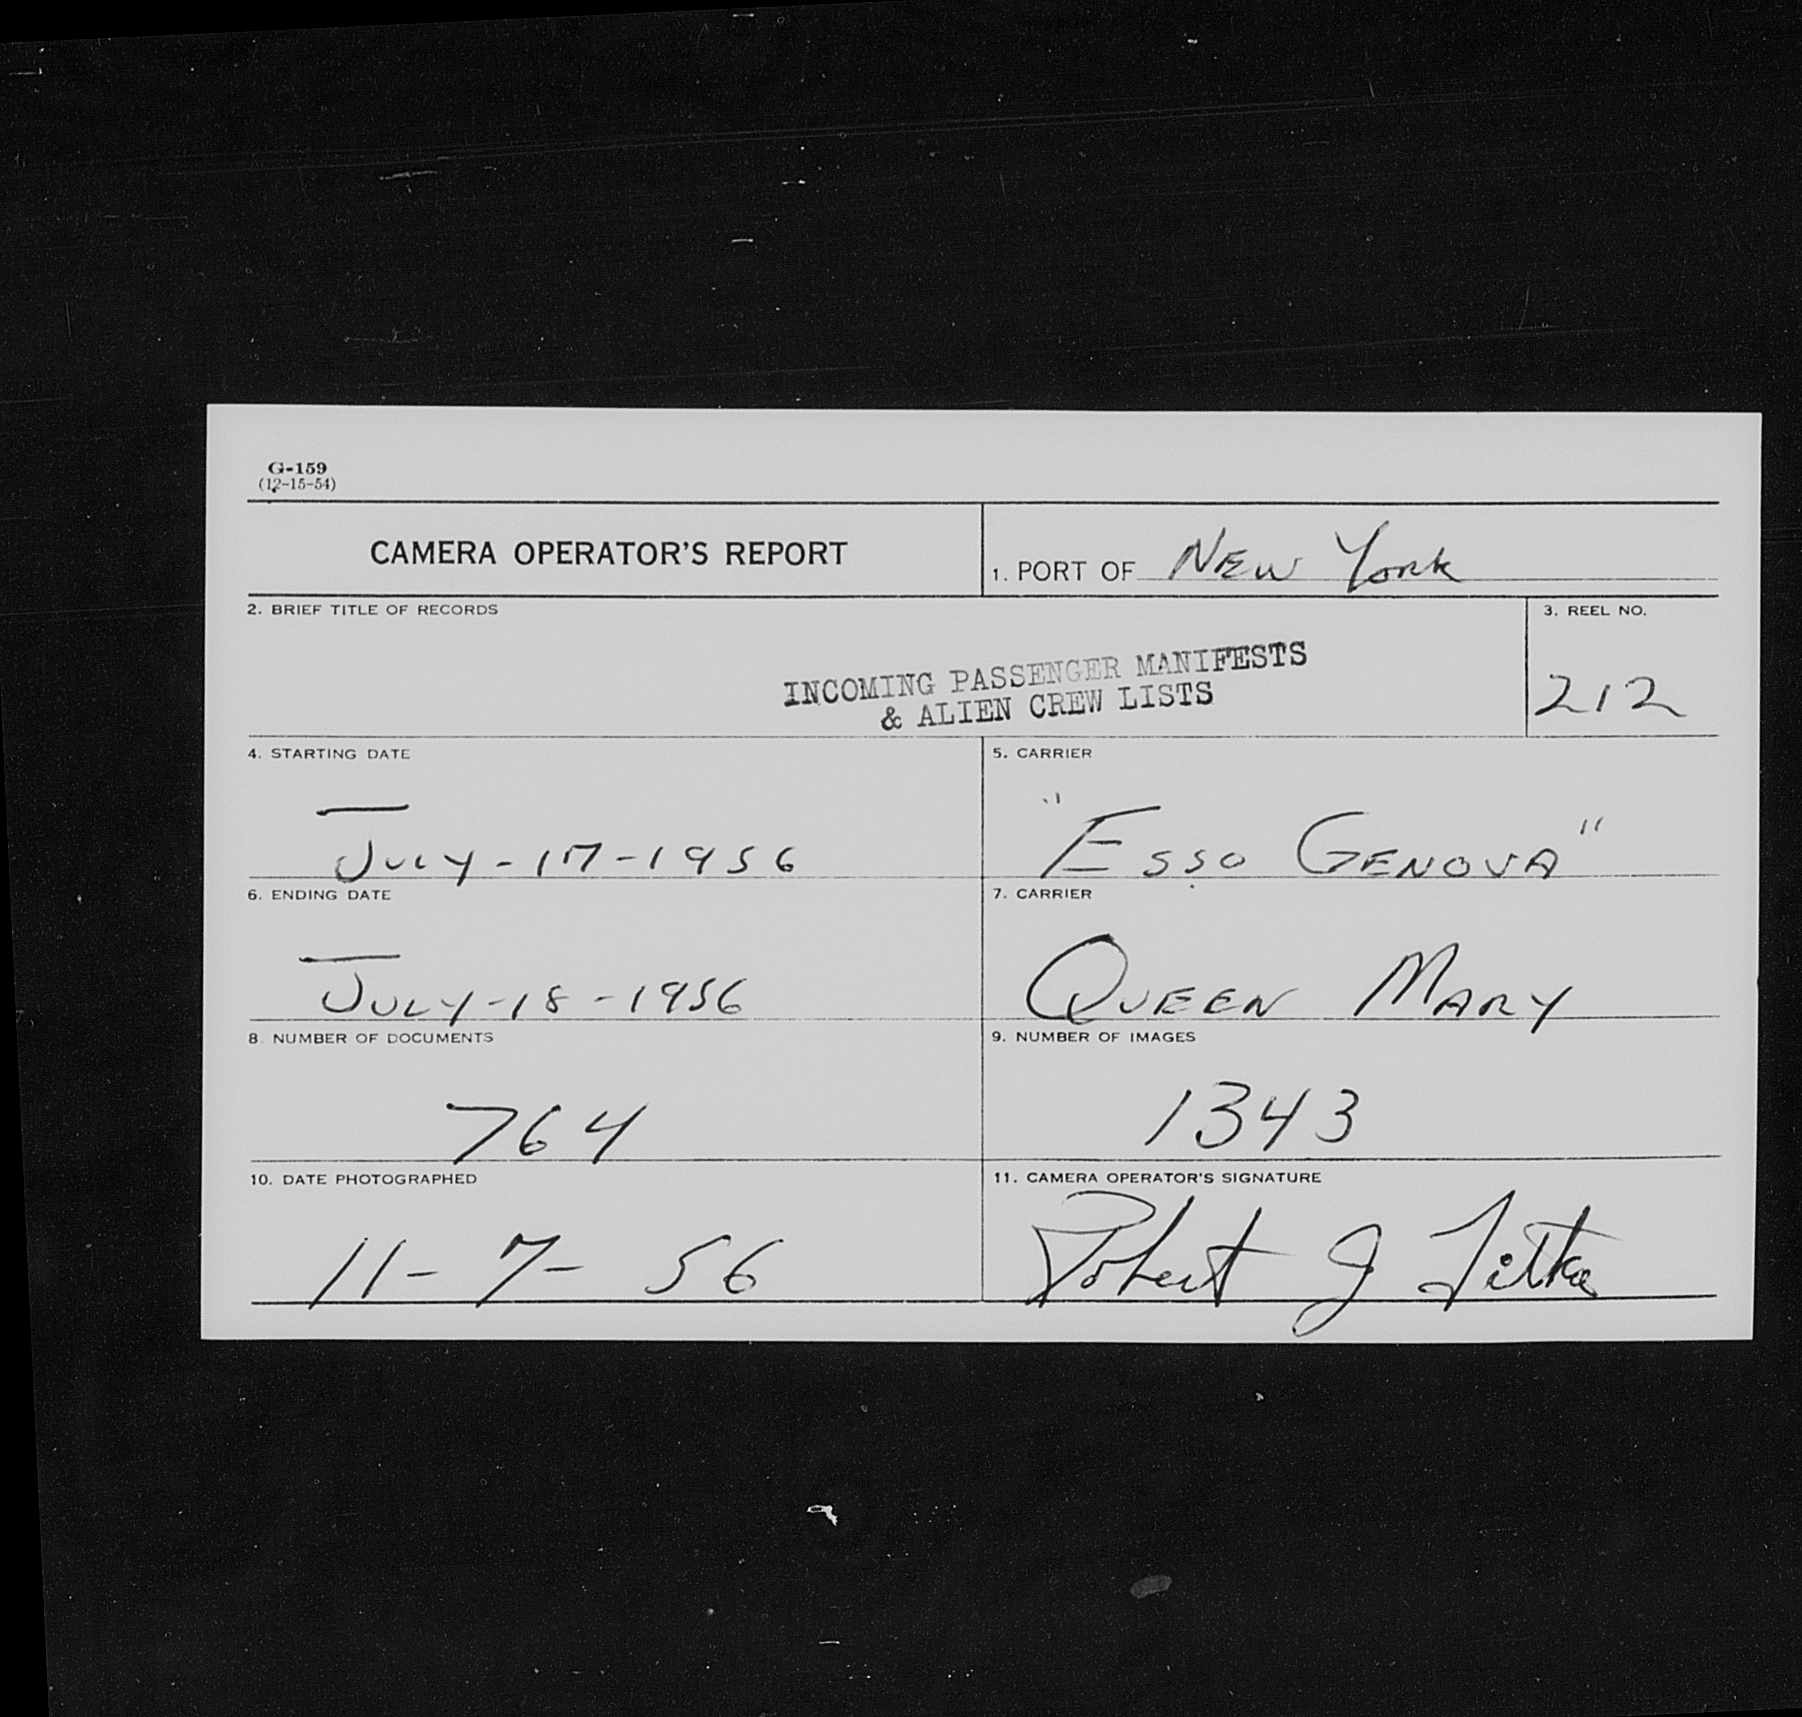 G-159
(12-15-54)
CAMERA OPERATOR'S REPORT
1. PORT OF New York
2. BRIEF TITLE OF RECORDS
INCOMING PASSENGER MANIFESTS
& ALIEN CREW LISTS
3. REEL NO.
212
4. STARTING DATE
July-17-1956
5. CARRIER
"Esso Genova"
6. ENDING DATE
July-18-1956
7. CARRIER
Queen Mary
8. NUMBER OF DOCUMENTS
764
9. NUMBER OF IMAGES
1343
10. DATE PHOTOGRAPHED
11-7-56
11. CAMERA OPERATOR'S SIGNATURE
Robert J